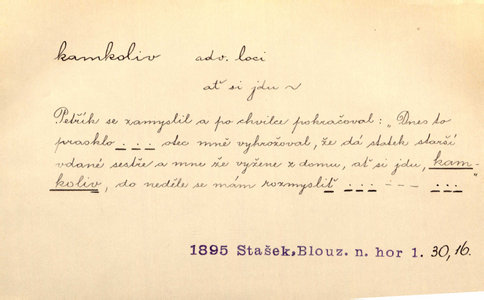 kamkoliv adv. loci
ať si jdu ~
Petřík se zamyslil a po chvilce pokračoval: „Dnes to
prasklo . . . otec mně vyhrožoval, že dá statek starší
vdané sestře a mne že vyžene z domu, ať si jdu, kam-
koliv, do neděle se mám rozmyslit ... --- ...“
1895 Stašek, Blouz. n. hor 1. 30, 16.